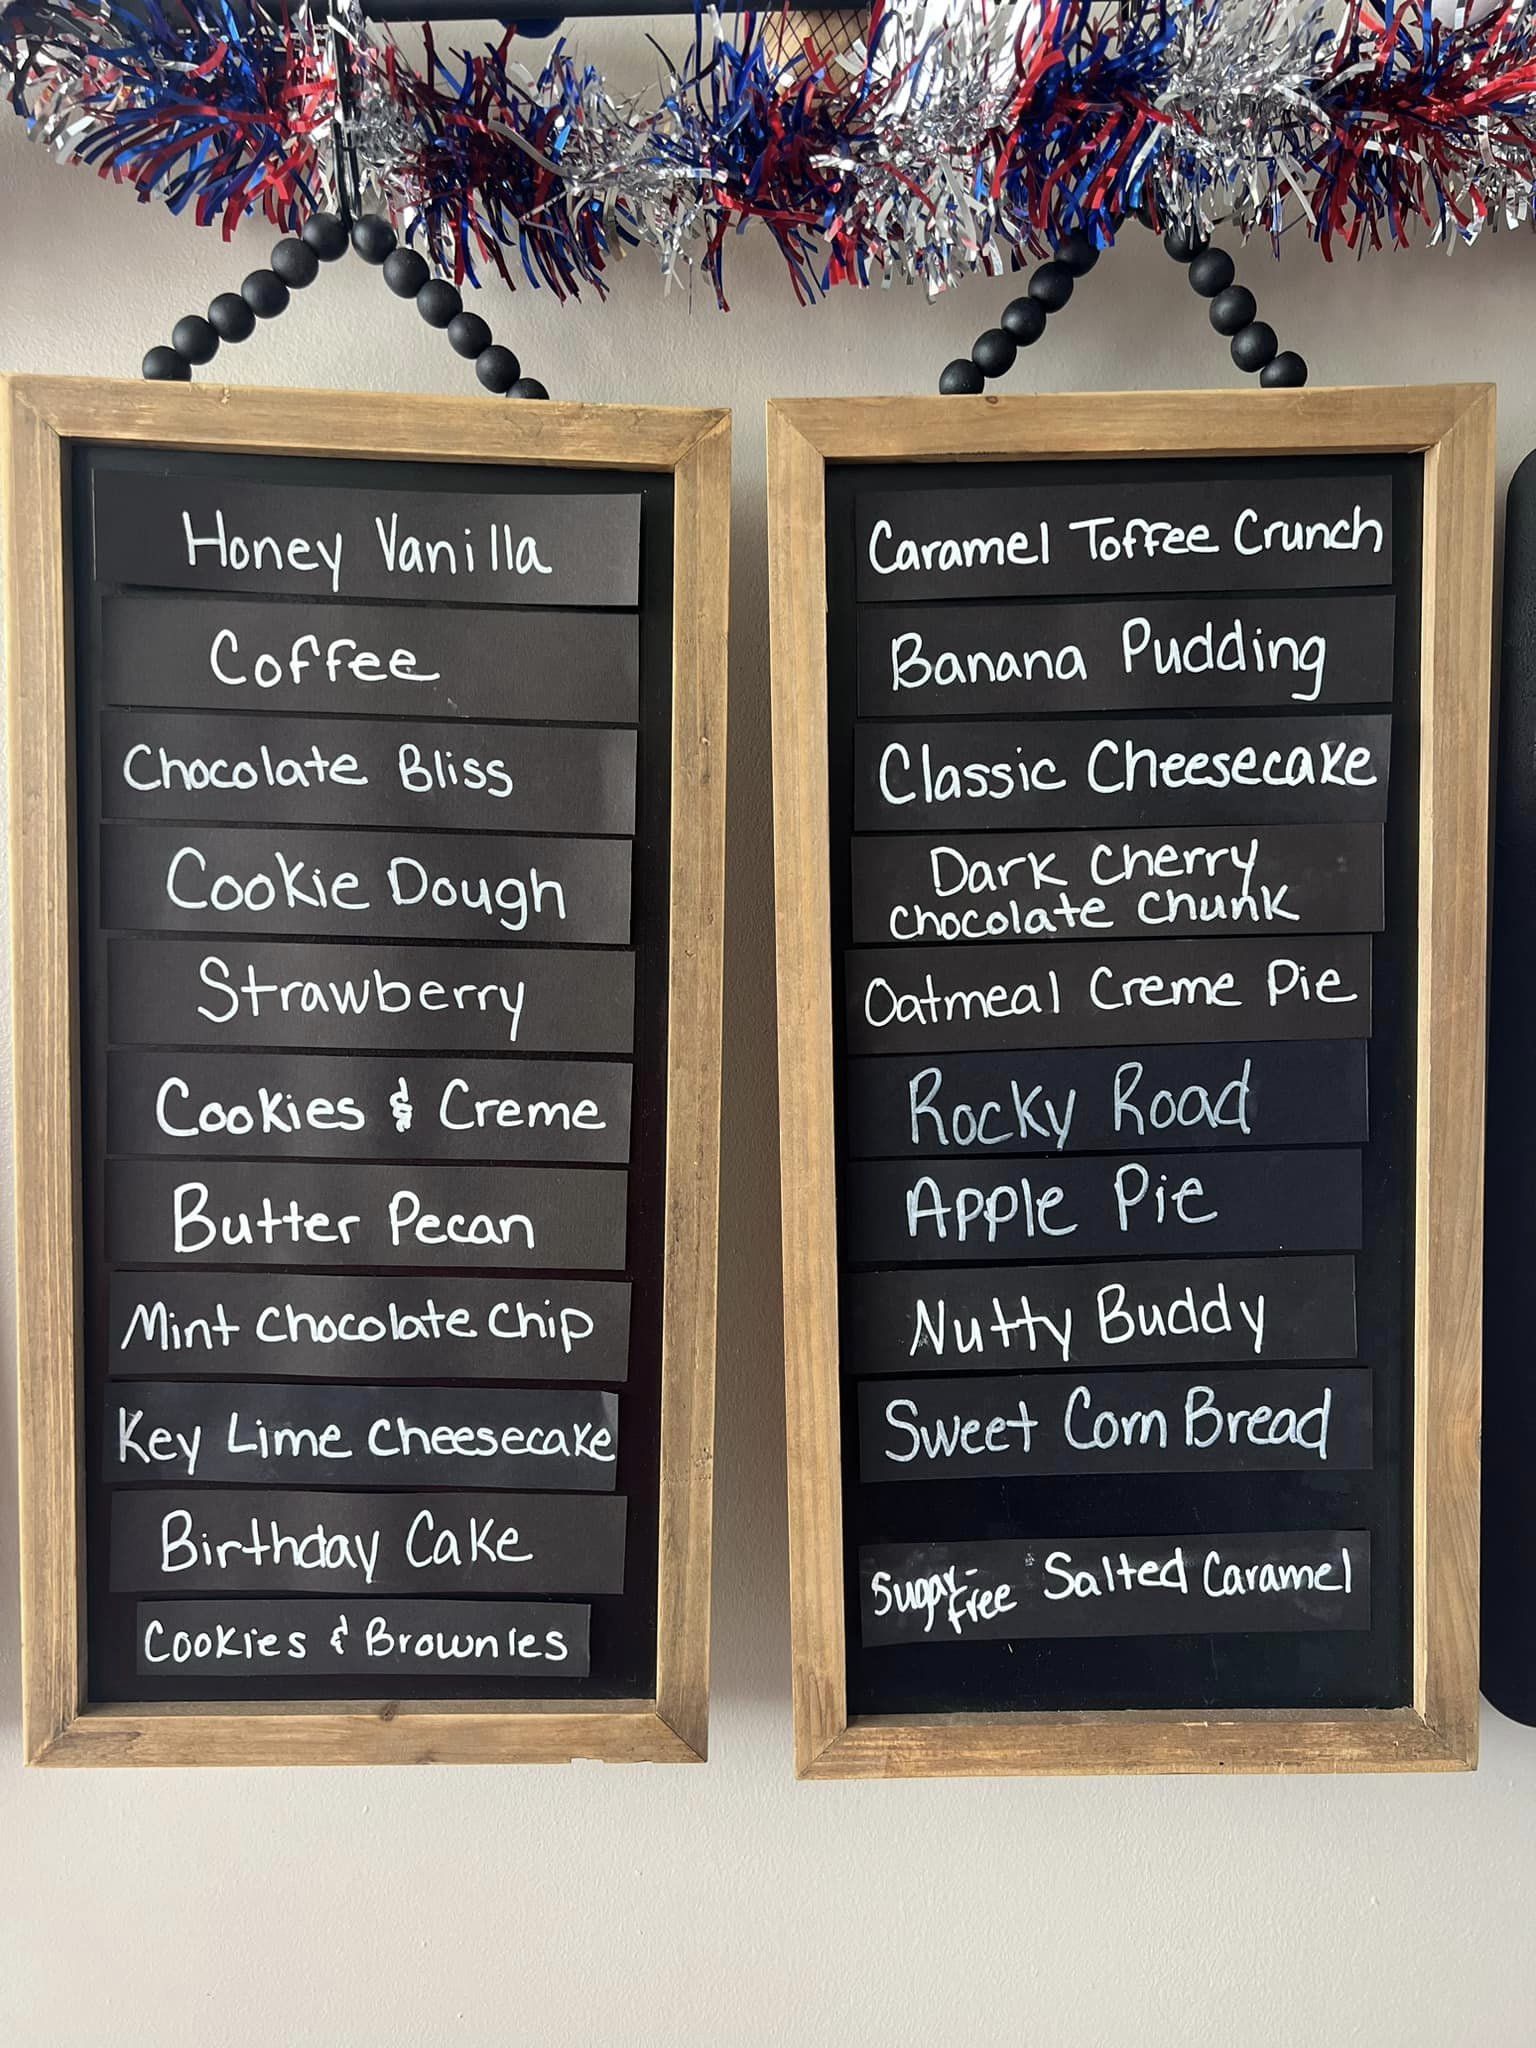 Honey Vanilla
Coffee
Chocolate Bliss
Cookie Dough
Strawberry
Cookies & Creme
Butter Pecan
Mint Chocolate Chip
Key Lime Cheesecake
Birthday Cake
Cookies & Brownies
Caramel Toffee Crunch
Banana Pudding
Classic Cheesecake
Dark Cherry
Chocolate Chunk
Oatmeal Creme Pie
Rocky Road
Apple Pie
Nutty Buddy
Sweet Corn Bread
Sugar-free Salted Caramel